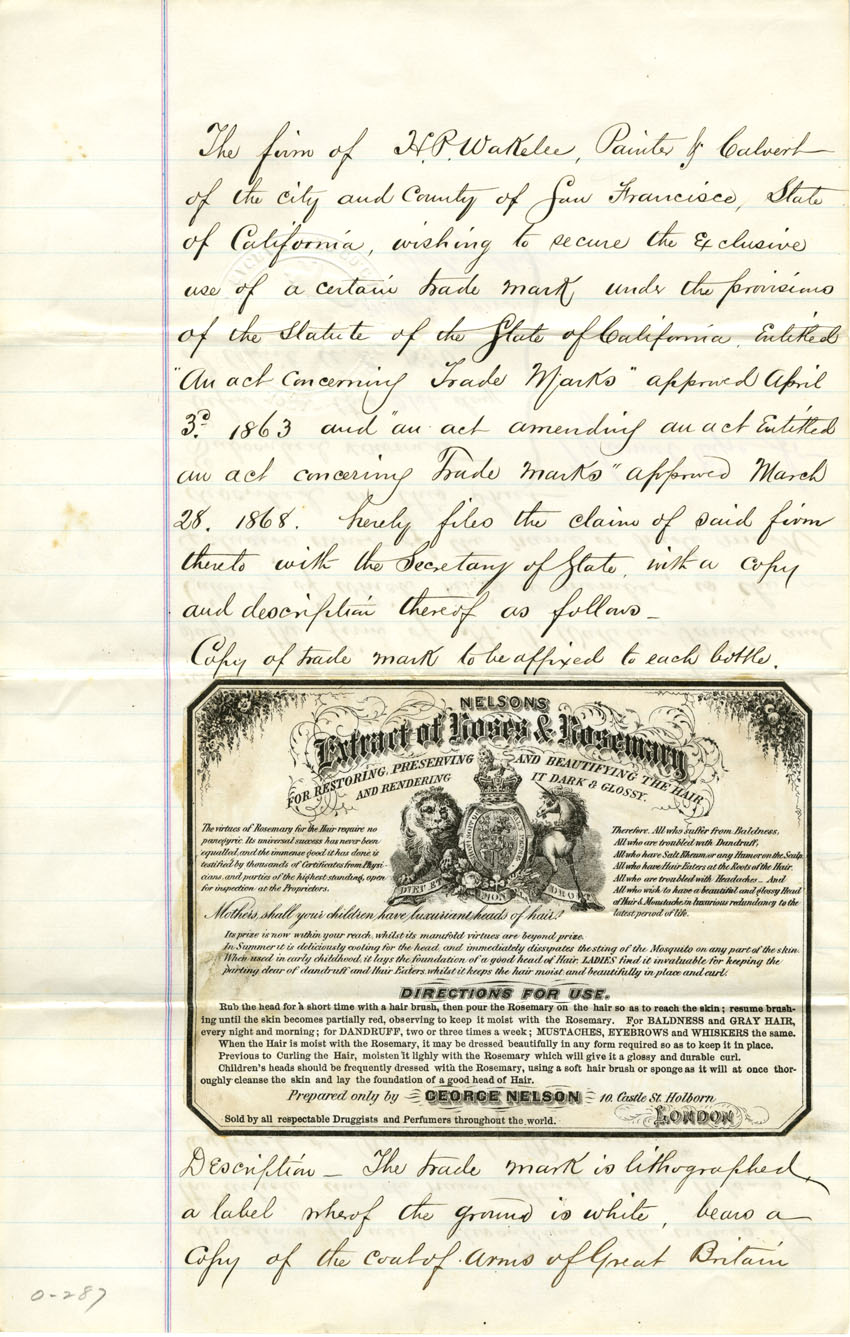 The firm of H.P. Wakelee, Painter & Calvert
of the city and County of San Francisco, State
of California, wishing to secure the Exclusive
use of a certain trade mark under the provisions
of the Statute of the State of California, Entitled
"An act Concerning Trade Marks" approved April
3.d 1863 and "an act amending an act Entitled
an act concering Trade Marks" approved March
28. 1868. herely files the claim of said firm
thereto with the Secretary of State, with a copy
and description thereof as follows_
Copy of trade mark to be affixed to each bottle.
NELSONS
Extract of Roses & Rosemary
FOR RESTORING, PRESERVING AND BEAUTIFYING THE HAIR
AND RENDERING IT DARK & GLOSSY.
The virtues of Rosemary for the Hair require no
panegyric. Its universal success has never been
equalled, and the immense good it has done, is
testified by thousands of Certificates from Physi-
cians, and parties of the highest standing, open
for inspection at the Proprietors.
DIEU ET MON DROIT
Therefore. All who suffer from Baldness,
All who are troubled with Dandruff,
All who have Salt Rheum or any Humor on the Scalp
All who have Hair Eaters at the Roots of the Hair.
All who are troubled with Headaches_ And
All who wish to have a beautiful and glossy Head
of Hair & Moustache in luxurious redundancy to the
latest period of life.
Mothers, shall your children have luxuriant heads of hair?
Its prize is now within your reach, whilst its manifold virtues are beyond prize.
In Summer it is deliciously cooling for the head, and immediately dissipates the sting of the Mosquito on any part of the skin.
When used in early childhood, it lays the foundation of a good head of Hair. LADIES find it invaluable for keeping the
parting clear of dandruff and Hair Eaters, whilst it keeps the hair moist and beautifully in place and curl.
DIRECTIONS FOR USE.
Rub the head for a short time with a hair brush, then pour the Rosemary on the hair so as to reach the skin; resume brush-
ing until the skin becomes partially red, observing to keep it moist with the Rosemary. For BALDNESS and GRAY HAIR,
every night and morning; for DANDRUFF, two or three times a week; MUSTACHES, EYEBROWS and WHISKERS the same.
When the Hair is moist with the Rosemary, it may be dressed beautifully in any form required so as to keep it in place.
Previous to Curling the Hair, moisten it lighly with the Rosemary which will give it a glossy and durable curl.
Children's heads should be frequently dressed with the Rosemary, using a soft hair brush or sponge as it will at once thor-
oughly cleanse the skin and lay the foundation of a good head of Hair.
Prepared only by GEORGE NELSON 10. Castle St. Holborn
LONDON
Sold by all respectable Druggists and Perfumers throughout the world.
Description_ The trade mark is lithographed,
a label wherof the ground is white, bears a
Copy of the coat of Arms of Great Britain
0-287